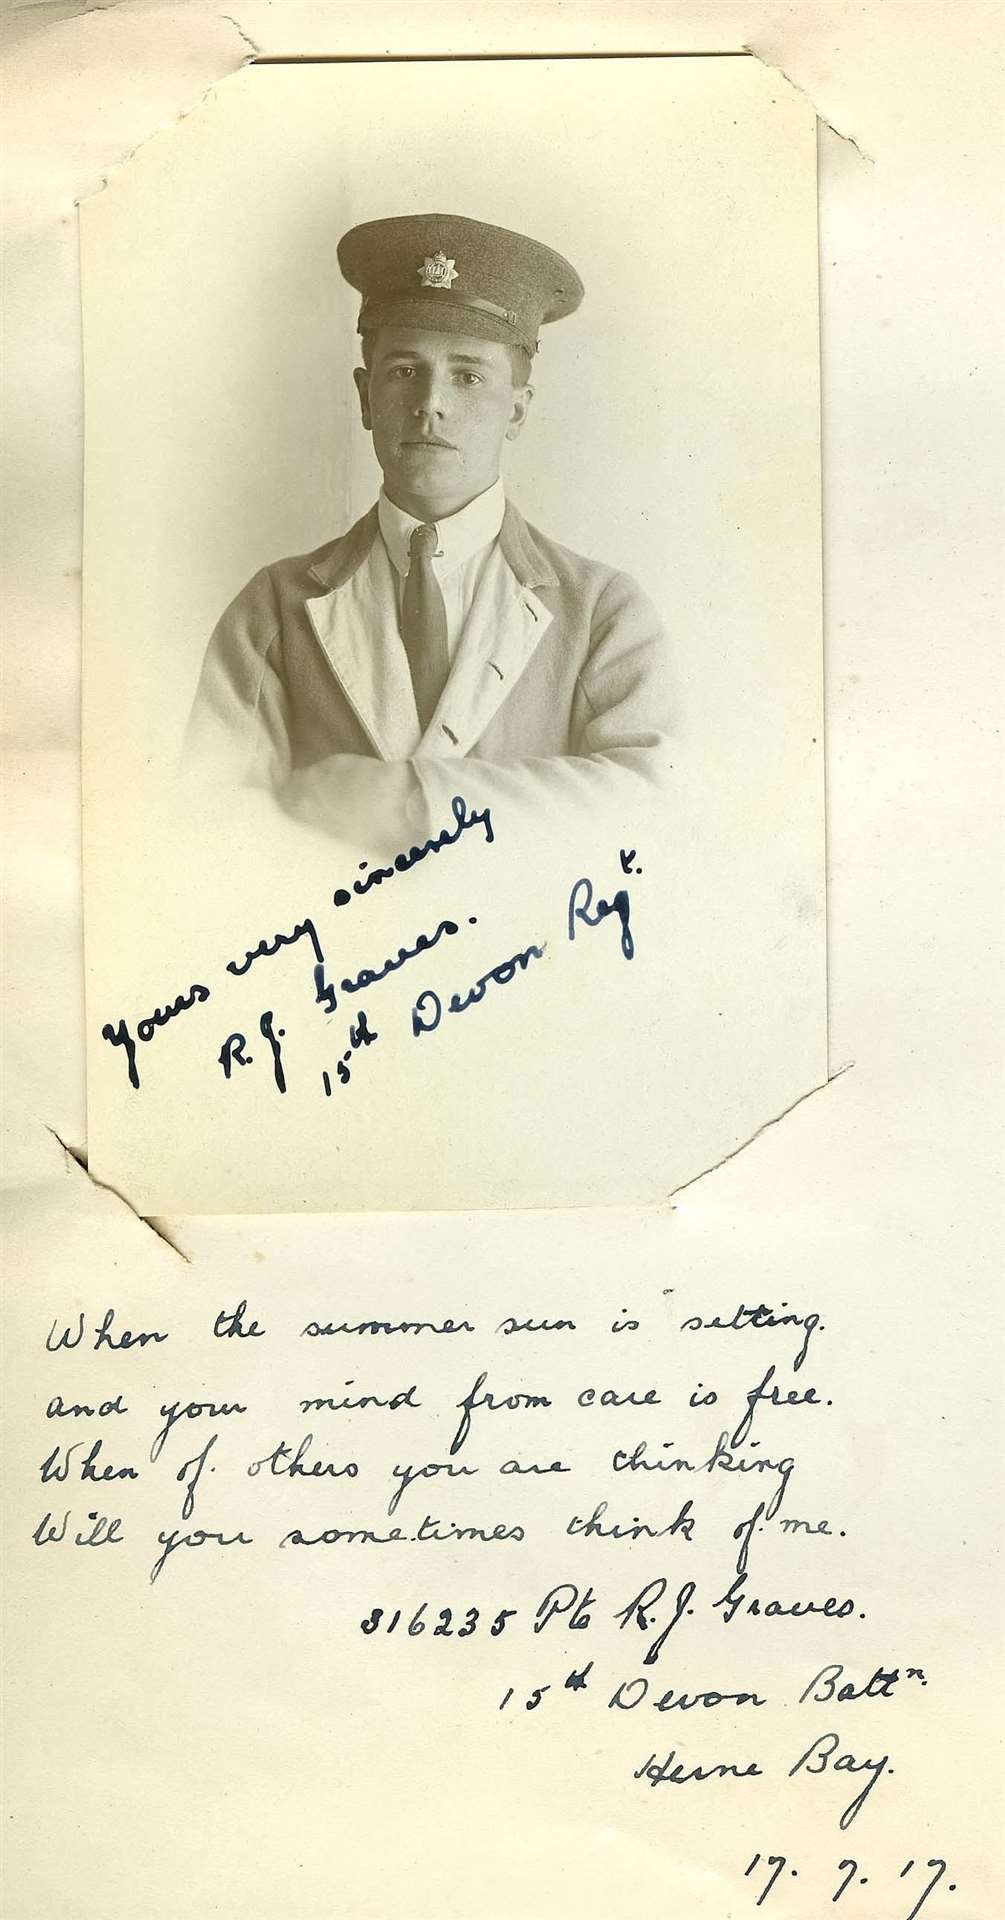 Yours very sincerely
R. J. Graves.
15th Devon Regt.
When the summer sun is setting.
and your mind from care is free.
When of others you are thinking
Will you sometimes think of me.
316235 Pte R. J. Graves.
15th Devon Battn.
Herne Bay.
17. 7. 17.